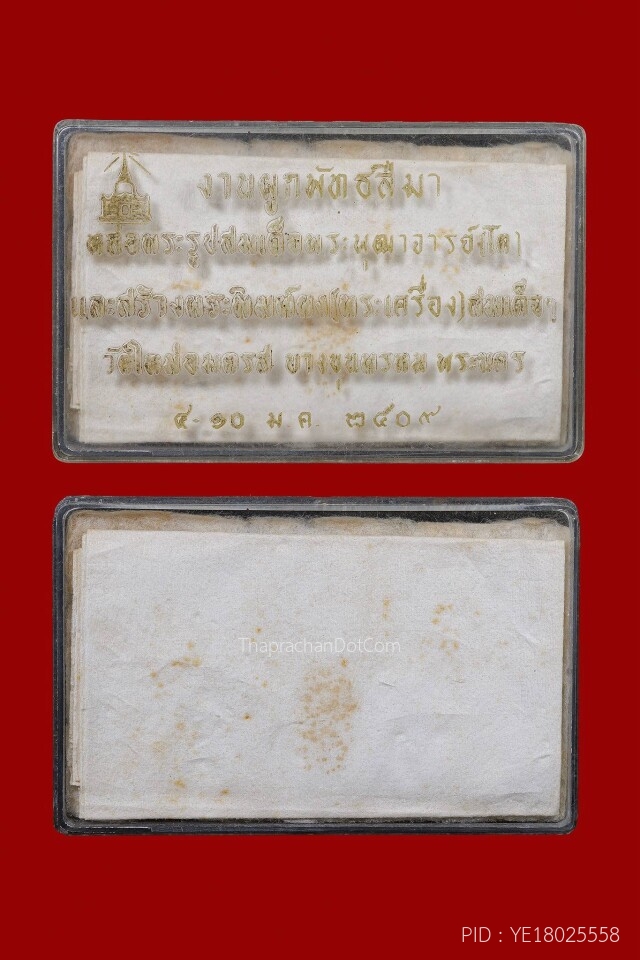 งานผูกพัทธสีมา
หล่อพระรูปสมเด็จพระพุฒาจารย์(โต)
และสร้างพระพิมพ์ผง(พระเครื่อง)สมเด็จฯ
วัดใหม่อมตรส บางขุนพรหม พระนคร
๔-๑๐ ม.ค. ๒๕๐๙
ThaprachanDotCom
PID : YE18025558